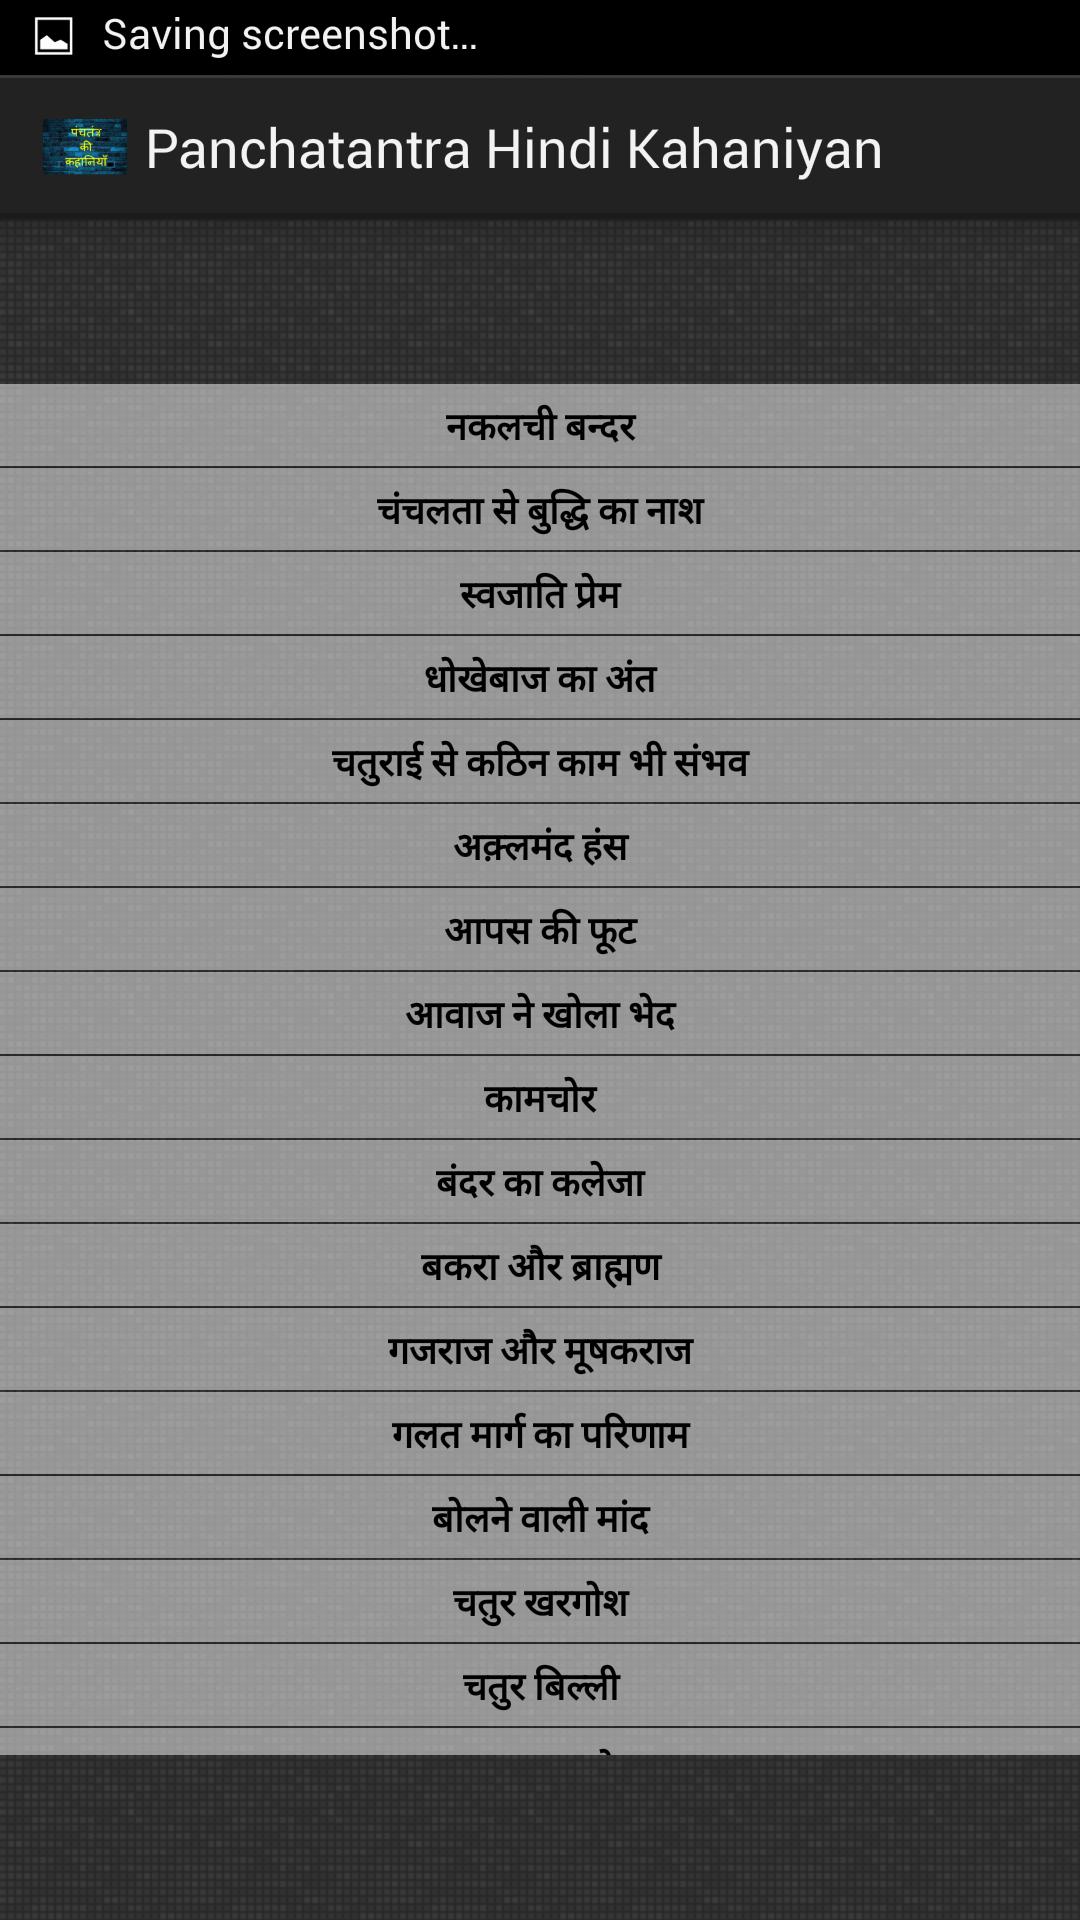 Saving screenshot...
पंचतंत्र
की
कहानियाँ
Panchatantra Hindi Kahaniyan
नकलची बन्दर
चंचलता से बुद्धि का नाश
स्वजाति प्रेम
धोखेबाज का अंत
चतुराई से कठिन काम भी संभव
अक़्लमंद हंस
आपस की फूट
आवाज ने खोला भेद
कामचोर
बंदर का कलेजा
बकरा और ब्राह्मण
गजराज और मूषकराज
गलत मार्ग का परिणाम
बोलने वाली मांद
चतुर खरगोश
चतुर बिल्ली